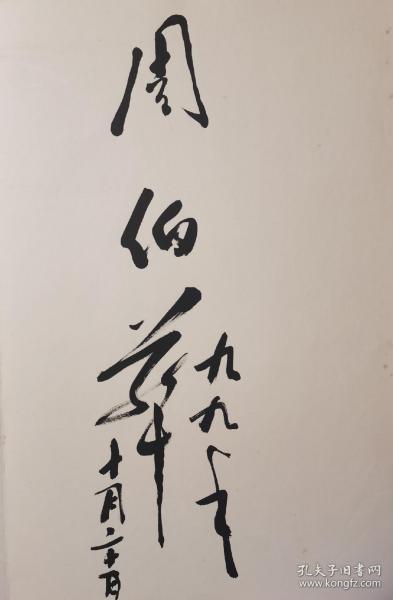 周伯
九九年
十月二十日
孔夫子旧书网
www.kongfz.com